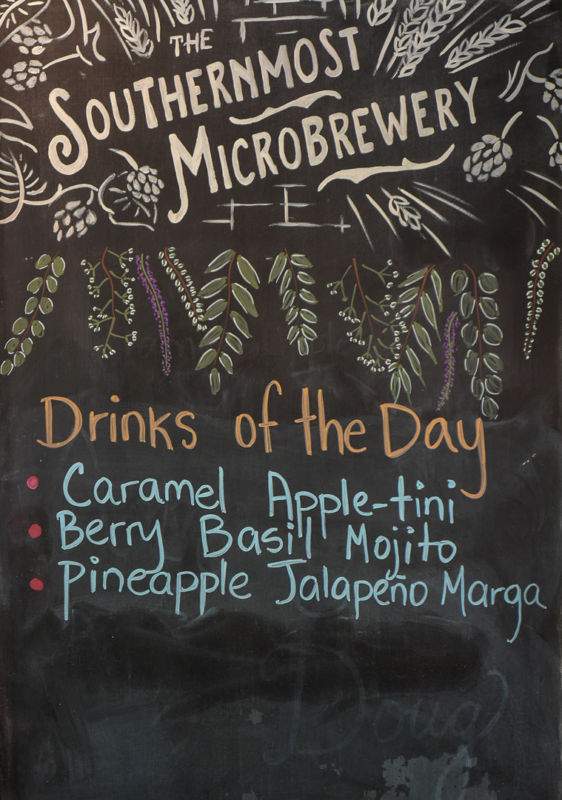 THE
SOUTHERNMOST
MICROBREWERY
Drinks of the Day
Caramel Apple-tini
Berry Basil Mojito
Pineapple Jalapeño Marga
Doug